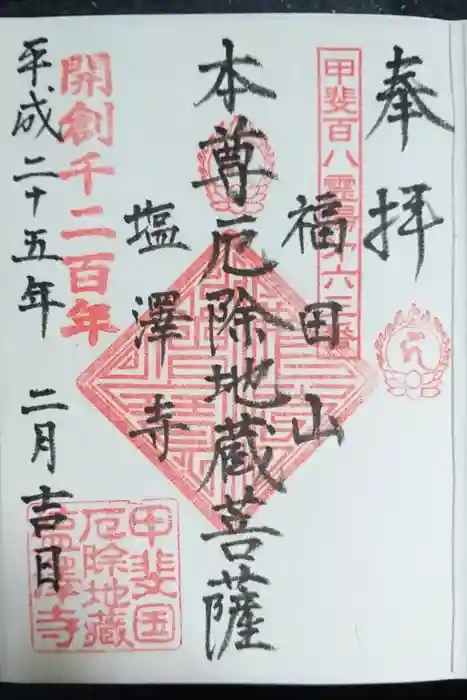 奉拝
甲斐百八霊場第六三番
福田山
本尊厄除地蔵菩薩
塩澤寺
開創千二百年
平成二十五年 二月吉日
甲斐国
厄除地蔵
塩澤寺